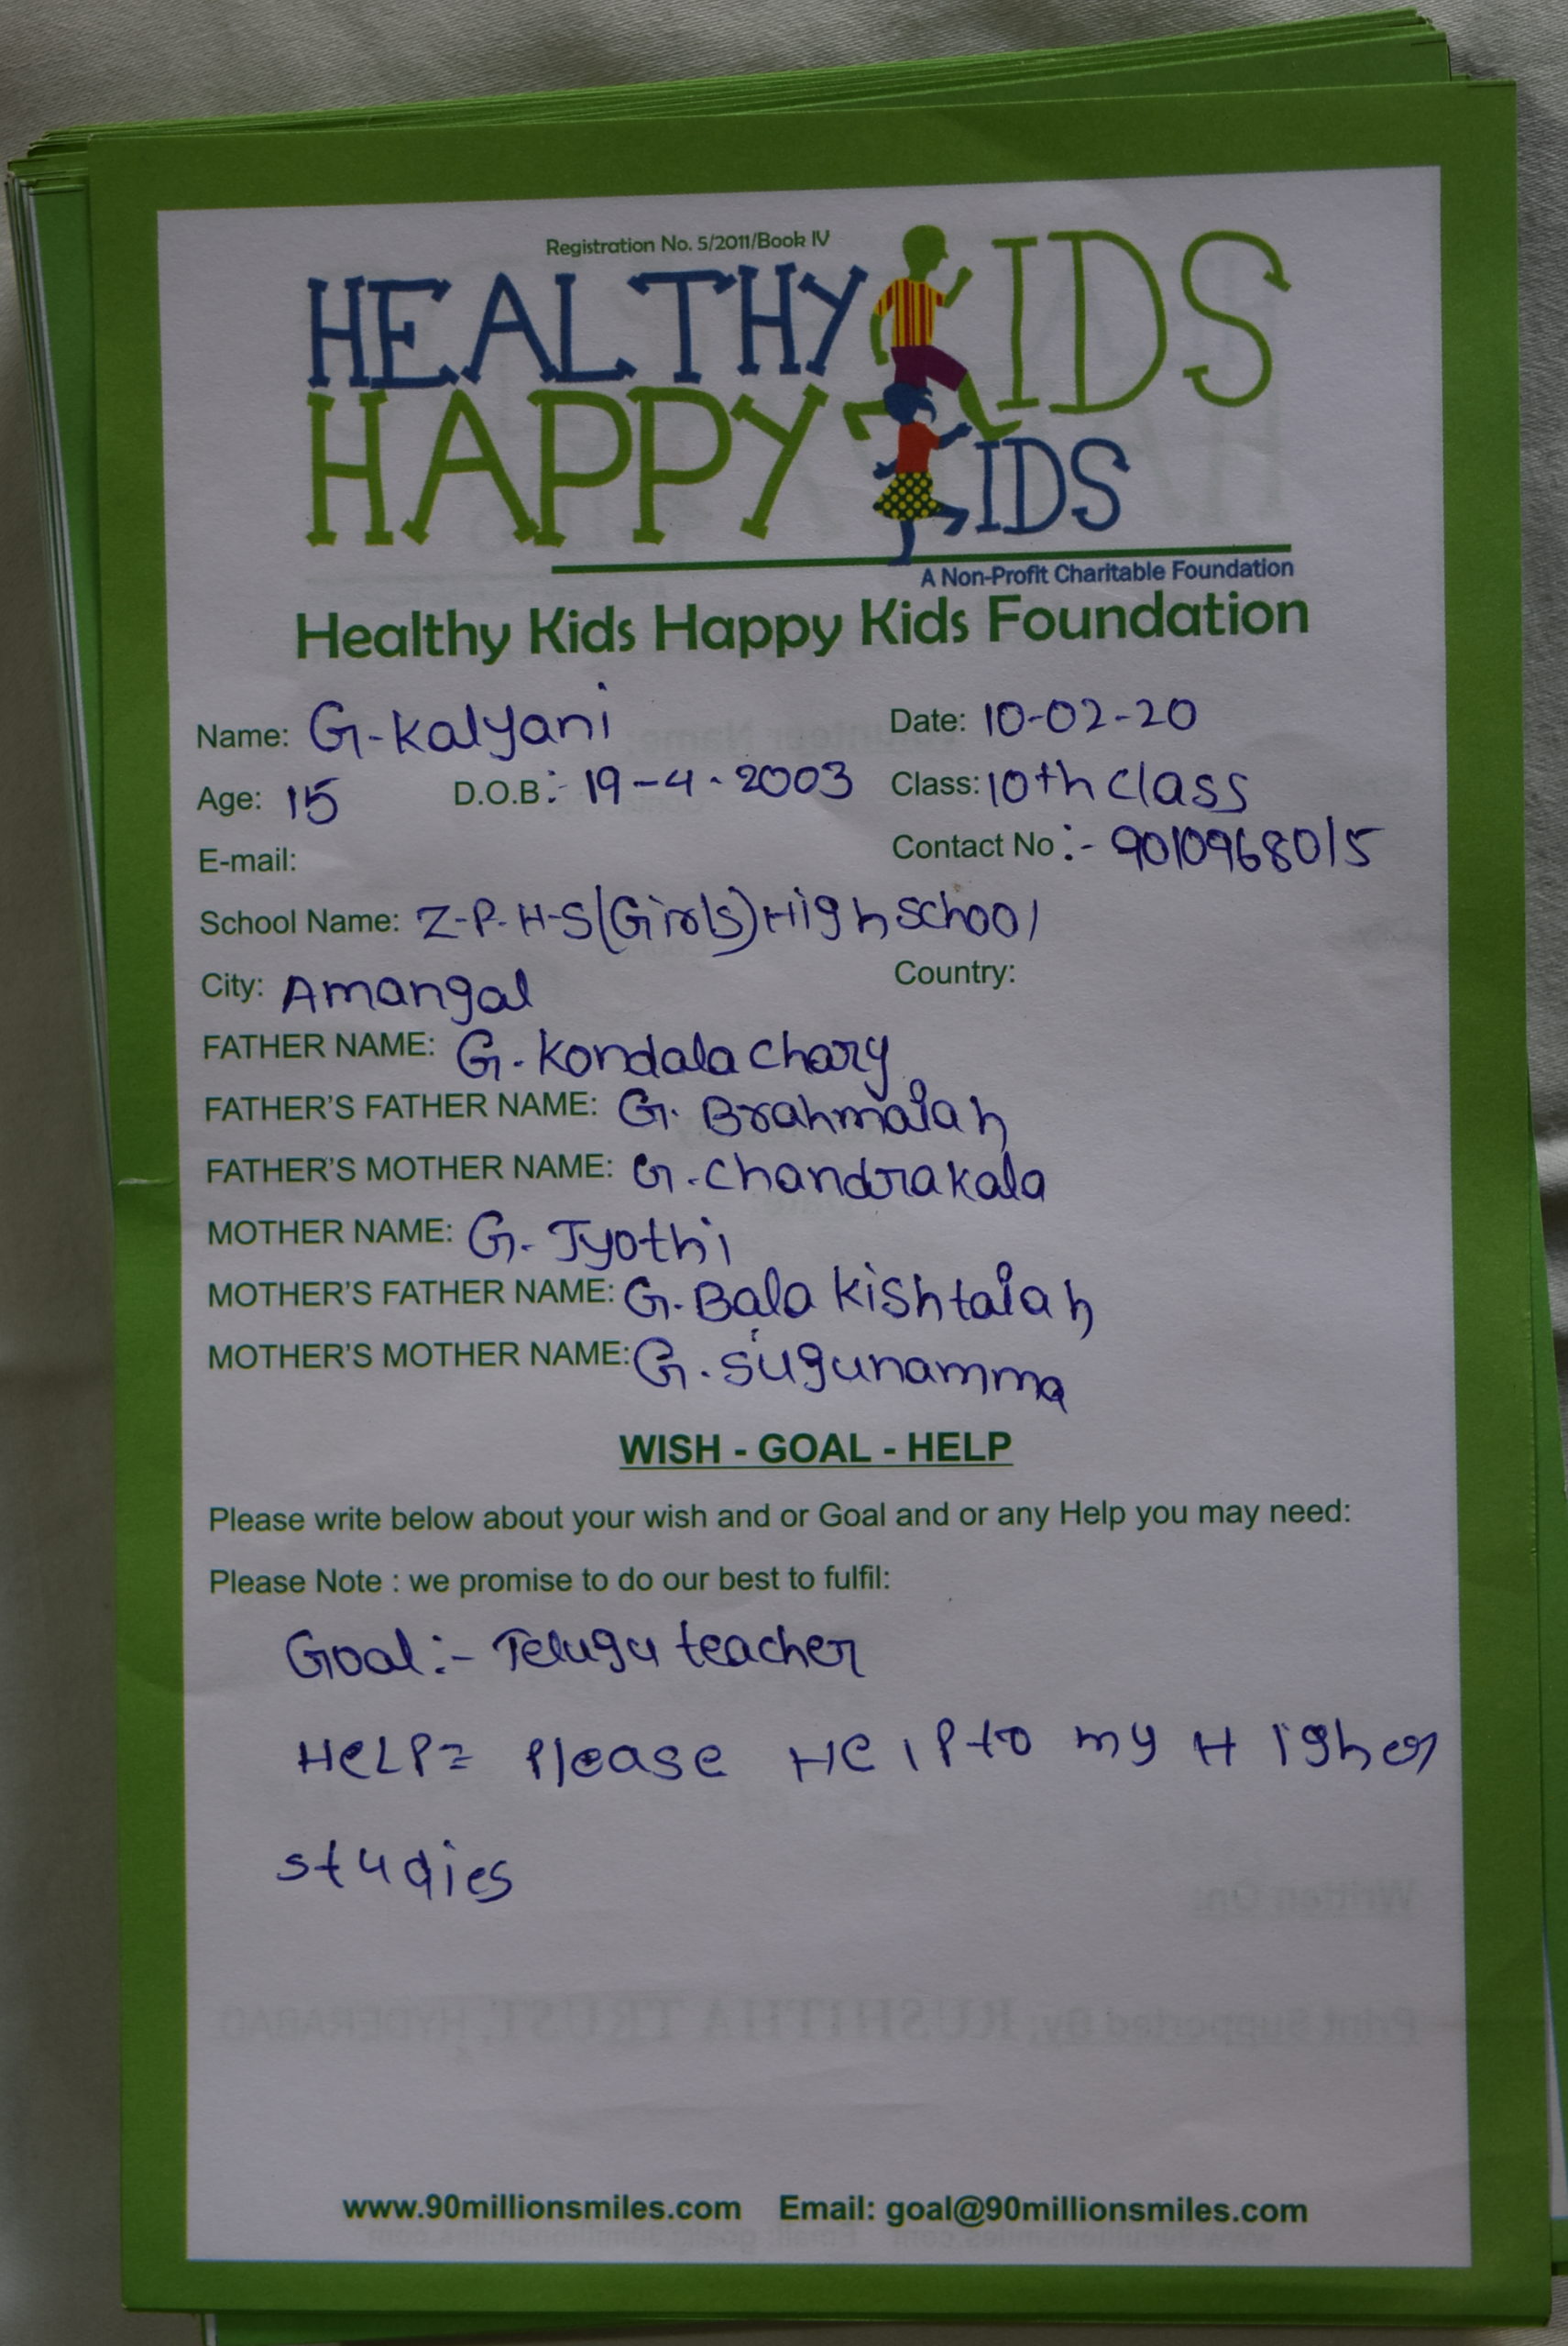 Registration No. 5/2011/Book IV
HEALTHY KIDS
HAPPY KIDS
A Non-Profit Charitable Foundation
Healthy Kids Happy Kids Foundation
Name: G-kalyani Date: 10-02-20
Age: 15 D.O.B:- 19-4-2003 Class: 10th class
E-mail: Contact No:- 9010968015
School Name: Z-P-H-S(Girls)High school
City: Amangal Country:
FATHER NAME: G. kondala chary
FATHER'S FATHER NAME: G. Brahmaiah
FATHER'S MOTHER NAME: G. chandrakala
MOTHER NAME: G. Jyothi
MOTHER'S FATHER NAME: G. Bala kishtaiah
MOTHER'S MOTHER NAME: G. sugunamma
WISH - GOAL - HELP
Please write below about your wish and or Goal and or any Help you may need:
Please Note : we promise to do our best to fulfil:
Goal:- Telugu teacher
HELP= Please HElP to my Higher
studies
Written On:
Print Supported By: RUSHITHA TRUST, HYDERABAD
www.90millionsmiles.com Email: goal@90millionsmiles.com